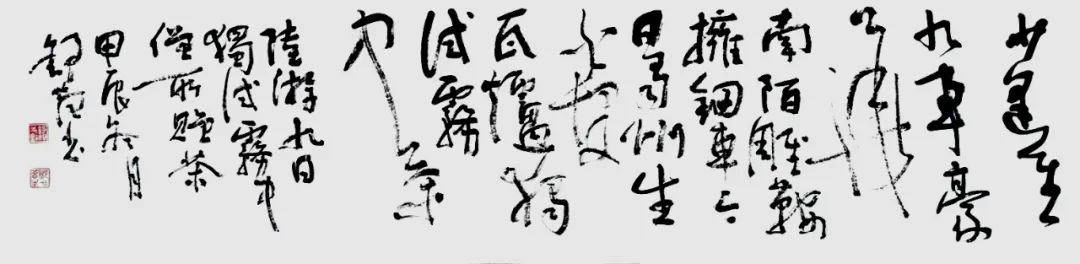 少逢重
九事豪
華
南陌雕鞍
擁鈿車今
日蜀州生
白髮
瓦爐獨
試霧
中茶
陸游九日
獨試霧中
僧所贈茶
甲辰冬月
書